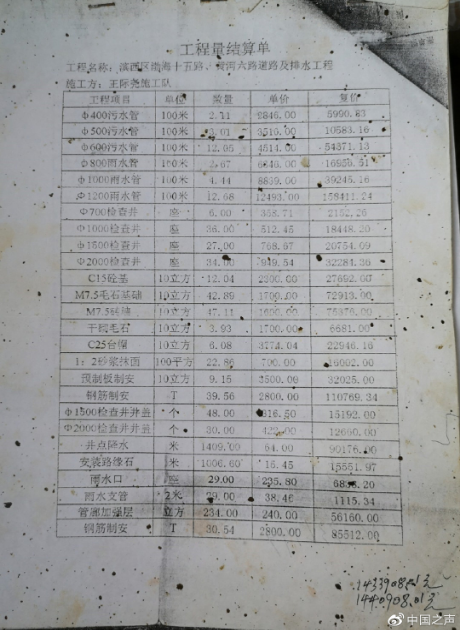 工程量结算单
工程名称：滨西区渤海十五路、黄河六路道路及排水工程
施工方：王际尧施工队
工程项目 单位 数量 单价 复价
Φ400污水管 100米 2.11 2846.00
Φ500污水管 100米 3.01 10583.16
Φ600污水管 100米 12.05 4514.00 54371.13
Φ800雨水管 100米
Φ1000雨水管 100米 4.44 8839.00 39245.16
Φ1200雨水管 100米 12.68 12493.00 158411.24
Φ700检查井 座 6.00
Φ1000检查井 座 36.00 512.45 18448.20
Φ1500检查井 座 27.00 768.67 20754.09
Φ2000检查井 座 34.00 949.54 32284.36
C15砼基 10立方 12.04 2300.00 27692.00
M7.5毛石基础 10立方 42.89 1700.00 72913.00
M7.5砖墙 10立方 47.11 1600.00 75376.00
干砌毛石 10立方 3.93 1700.00 6681.00
C25台帽 10立方 6.08 3774.04 22946.16
1：2砂浆抹面 100平方 22.86 700.00 16002.00
预制板制安 10立方 9.15 3500.00 32025.00
钢筋制安 T 39.56 2800.00 110769.34
Φ1500检查井井盖 个 48.00 316.50 15192.00
Φ2000检查井井盖 个 30.00 422.00 12660.00
井点降水 米 1409.00 64.00 90176.00
安装路缘石 米 16.45 15551.97
雨水口 座 29.00 235.80 6838.20
雨水支管 米 29.00 38.46 1115.34
管涵加强层 立方 234.00 240.00 56160.00
钢筋制安 T 30.54 2800.00 85512.00
1433908.01元
1440908.01元
中国之声